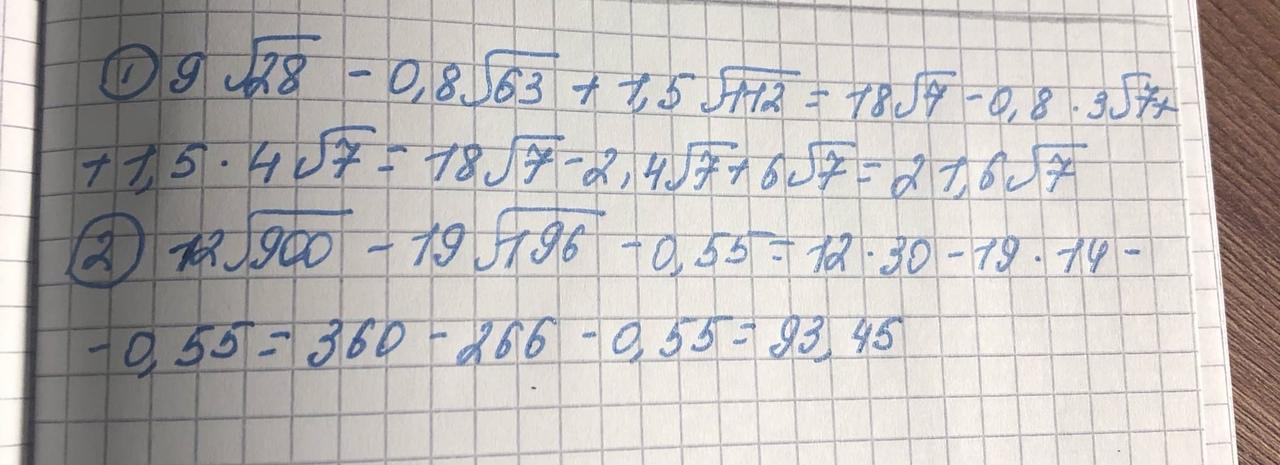 ① 9√28 - 0,8√63 + 1,5√112 = 18√7 - 0,8 · 3√7 +
+ 1,5 · 4√7 = 18√7 - 2,4√7 + 6√7 = 21,6√7
② 12√900 - 19√196 - 0,55 = 12 · 30 - 19 · 14 -
- 0,55 = 360 - 266 - 0,55 = 93,45